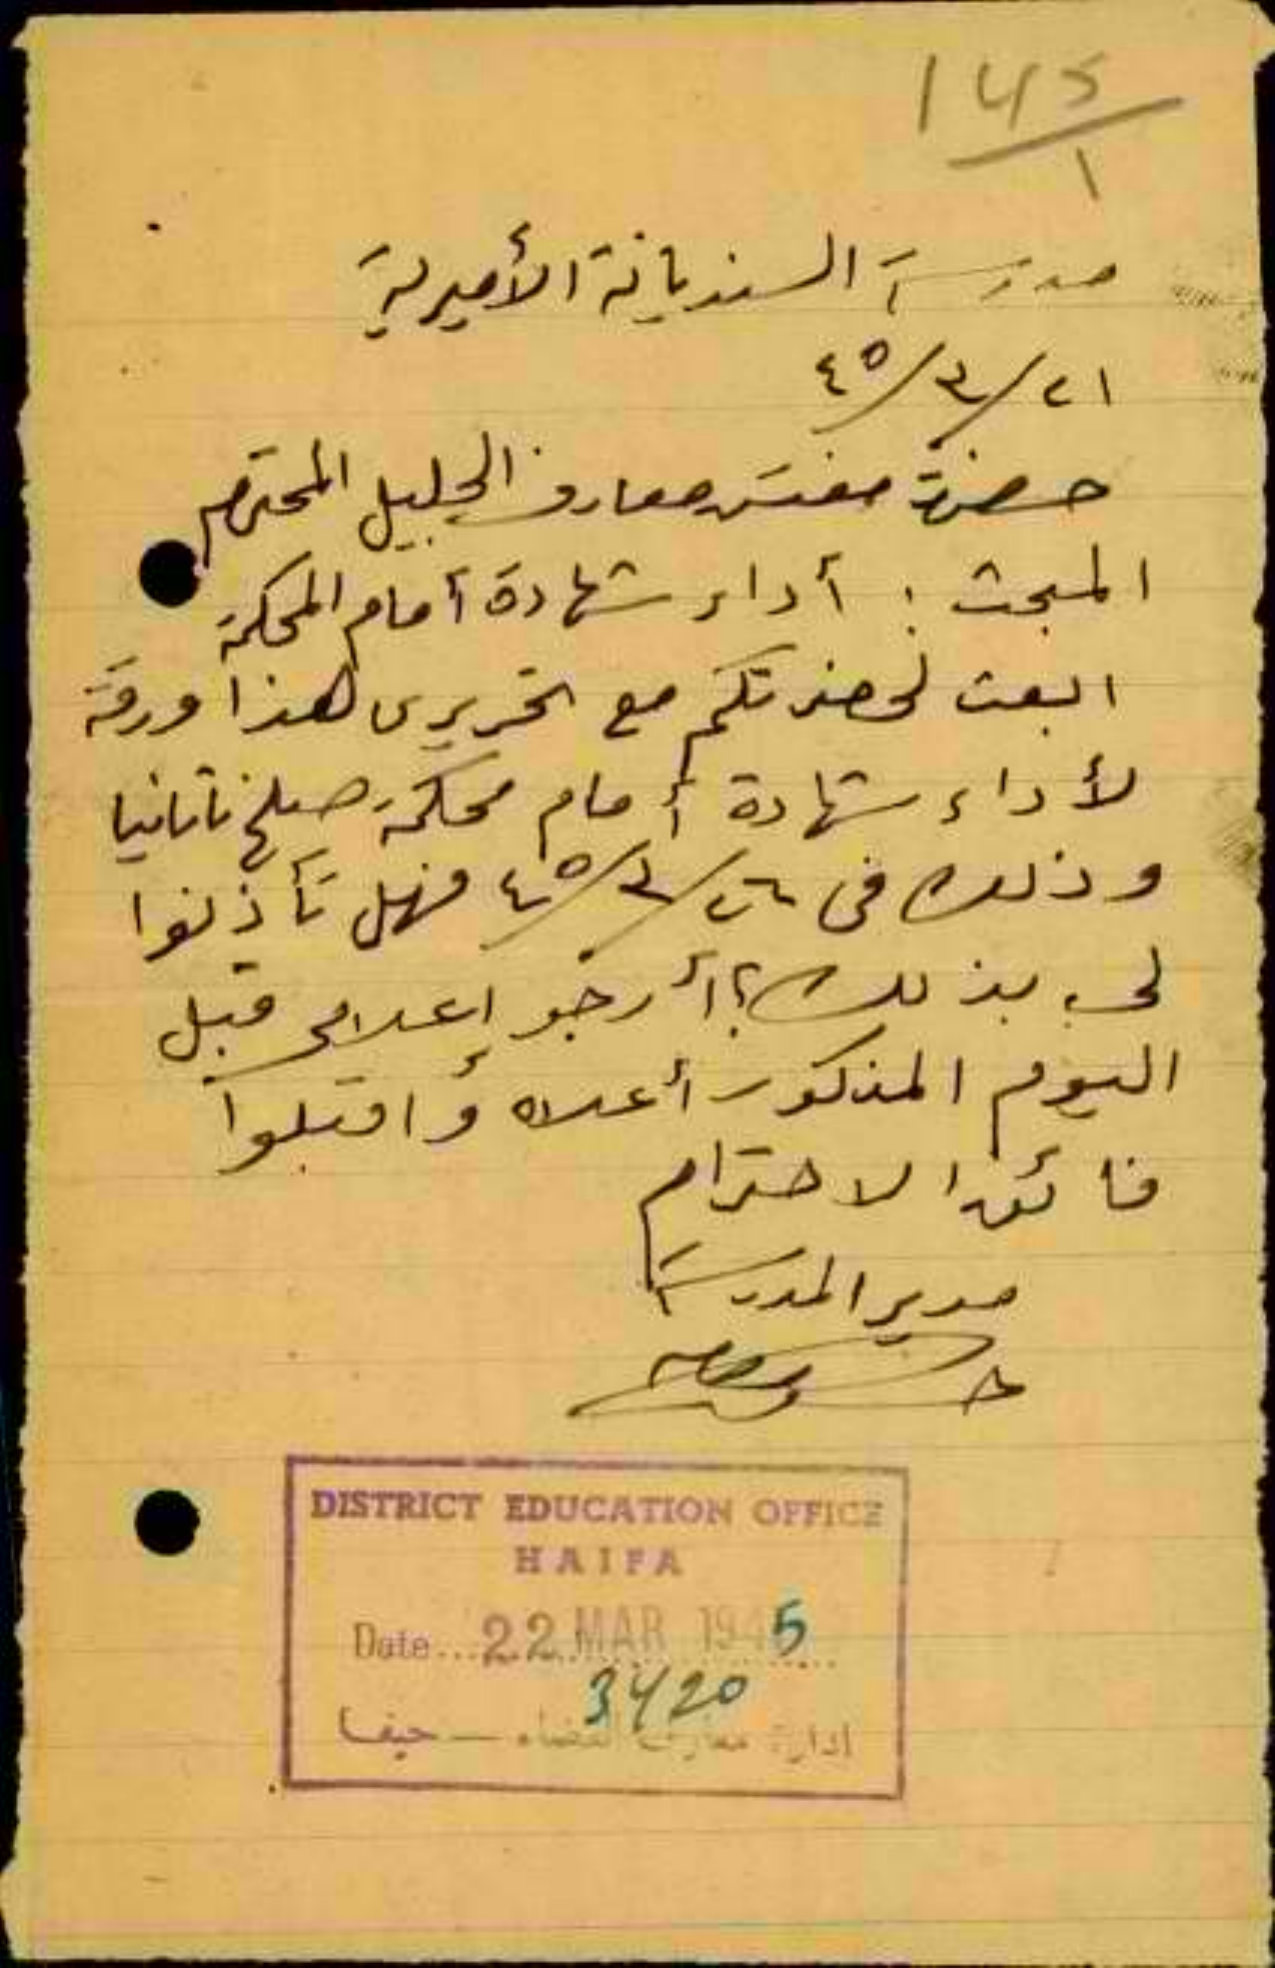 145
1
مدرسة السنديانة الأميرية
٢١/٣/٤٥
حضرة مفتش معارف الجليل المحترم
المبحث : أداء شهادة أمام المحكمة
ابعث لحضرتكم مع تحريري هذا ورقة
لأداء شهادة أمام محكمة صلح ناتانيا
وذلك في ٢٦/٣/٤٥ فهل تأذنوا
لي بذلك؟ أرجو إعلامي قبل
اليوم المذكور أعلاه واقبلوا
فائق الاحترام
مدير المدرسة
DISTRICT EDUCATION OFFICE
HAIFA
Date... 22 MAR 1945
3420
ادارة معارف القضاء — حيفا